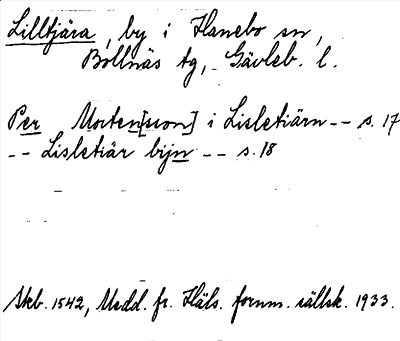 Lilltjära, by i Hanebo sn,
Bollnäs tg, Gävleb. l.
Per Morten[sson] i Lisletiärn -- s. 17
-- Lisletiär bijn -- s. 18
Skb. 1542, Medd. fr. Häls. fornm. sällsk. 1933.